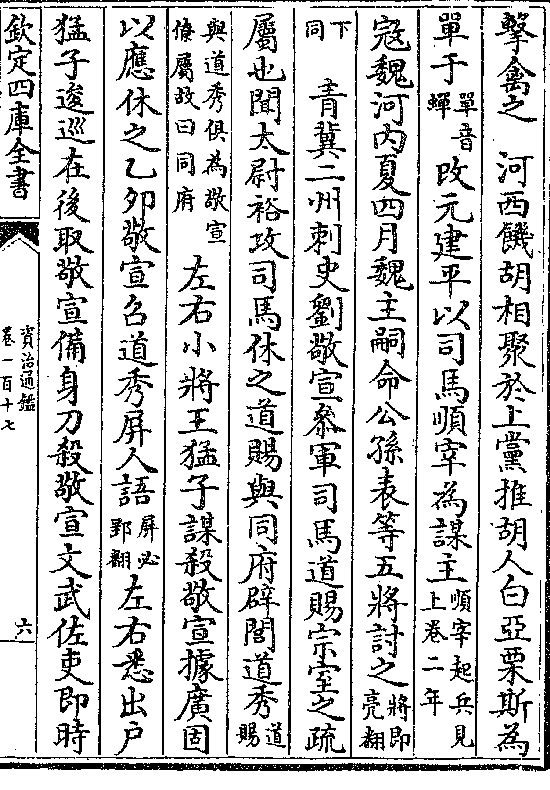 擊禽之　河西饑胡相聚於上黨推胡人白亞栗斯為
單于單音蟬改元建平以司馬順宰為謀主順宰起兵見上卷二年
寇魏河內夏四月魏主嗣命公孫表等五將討之將即亮翻
下同　青冀二州刺史劉敬宣參軍司馬道賜宗室之疏
屬也聞太尉裕攻司馬休之道賜與同府辟閭道秀道賜
與道秀俱為敬宣僚屬故曰同府左右小將王猛子謀殺敬宣據廣固
以應休之乙夘敬宣召道秀屏人語屏必郢翻左右悉出户
猛子逡巡在後取敬宣備身刀殺敬宣文武佐吏即時
欽定四庫全書
資治通鑑
卷一百十七
六